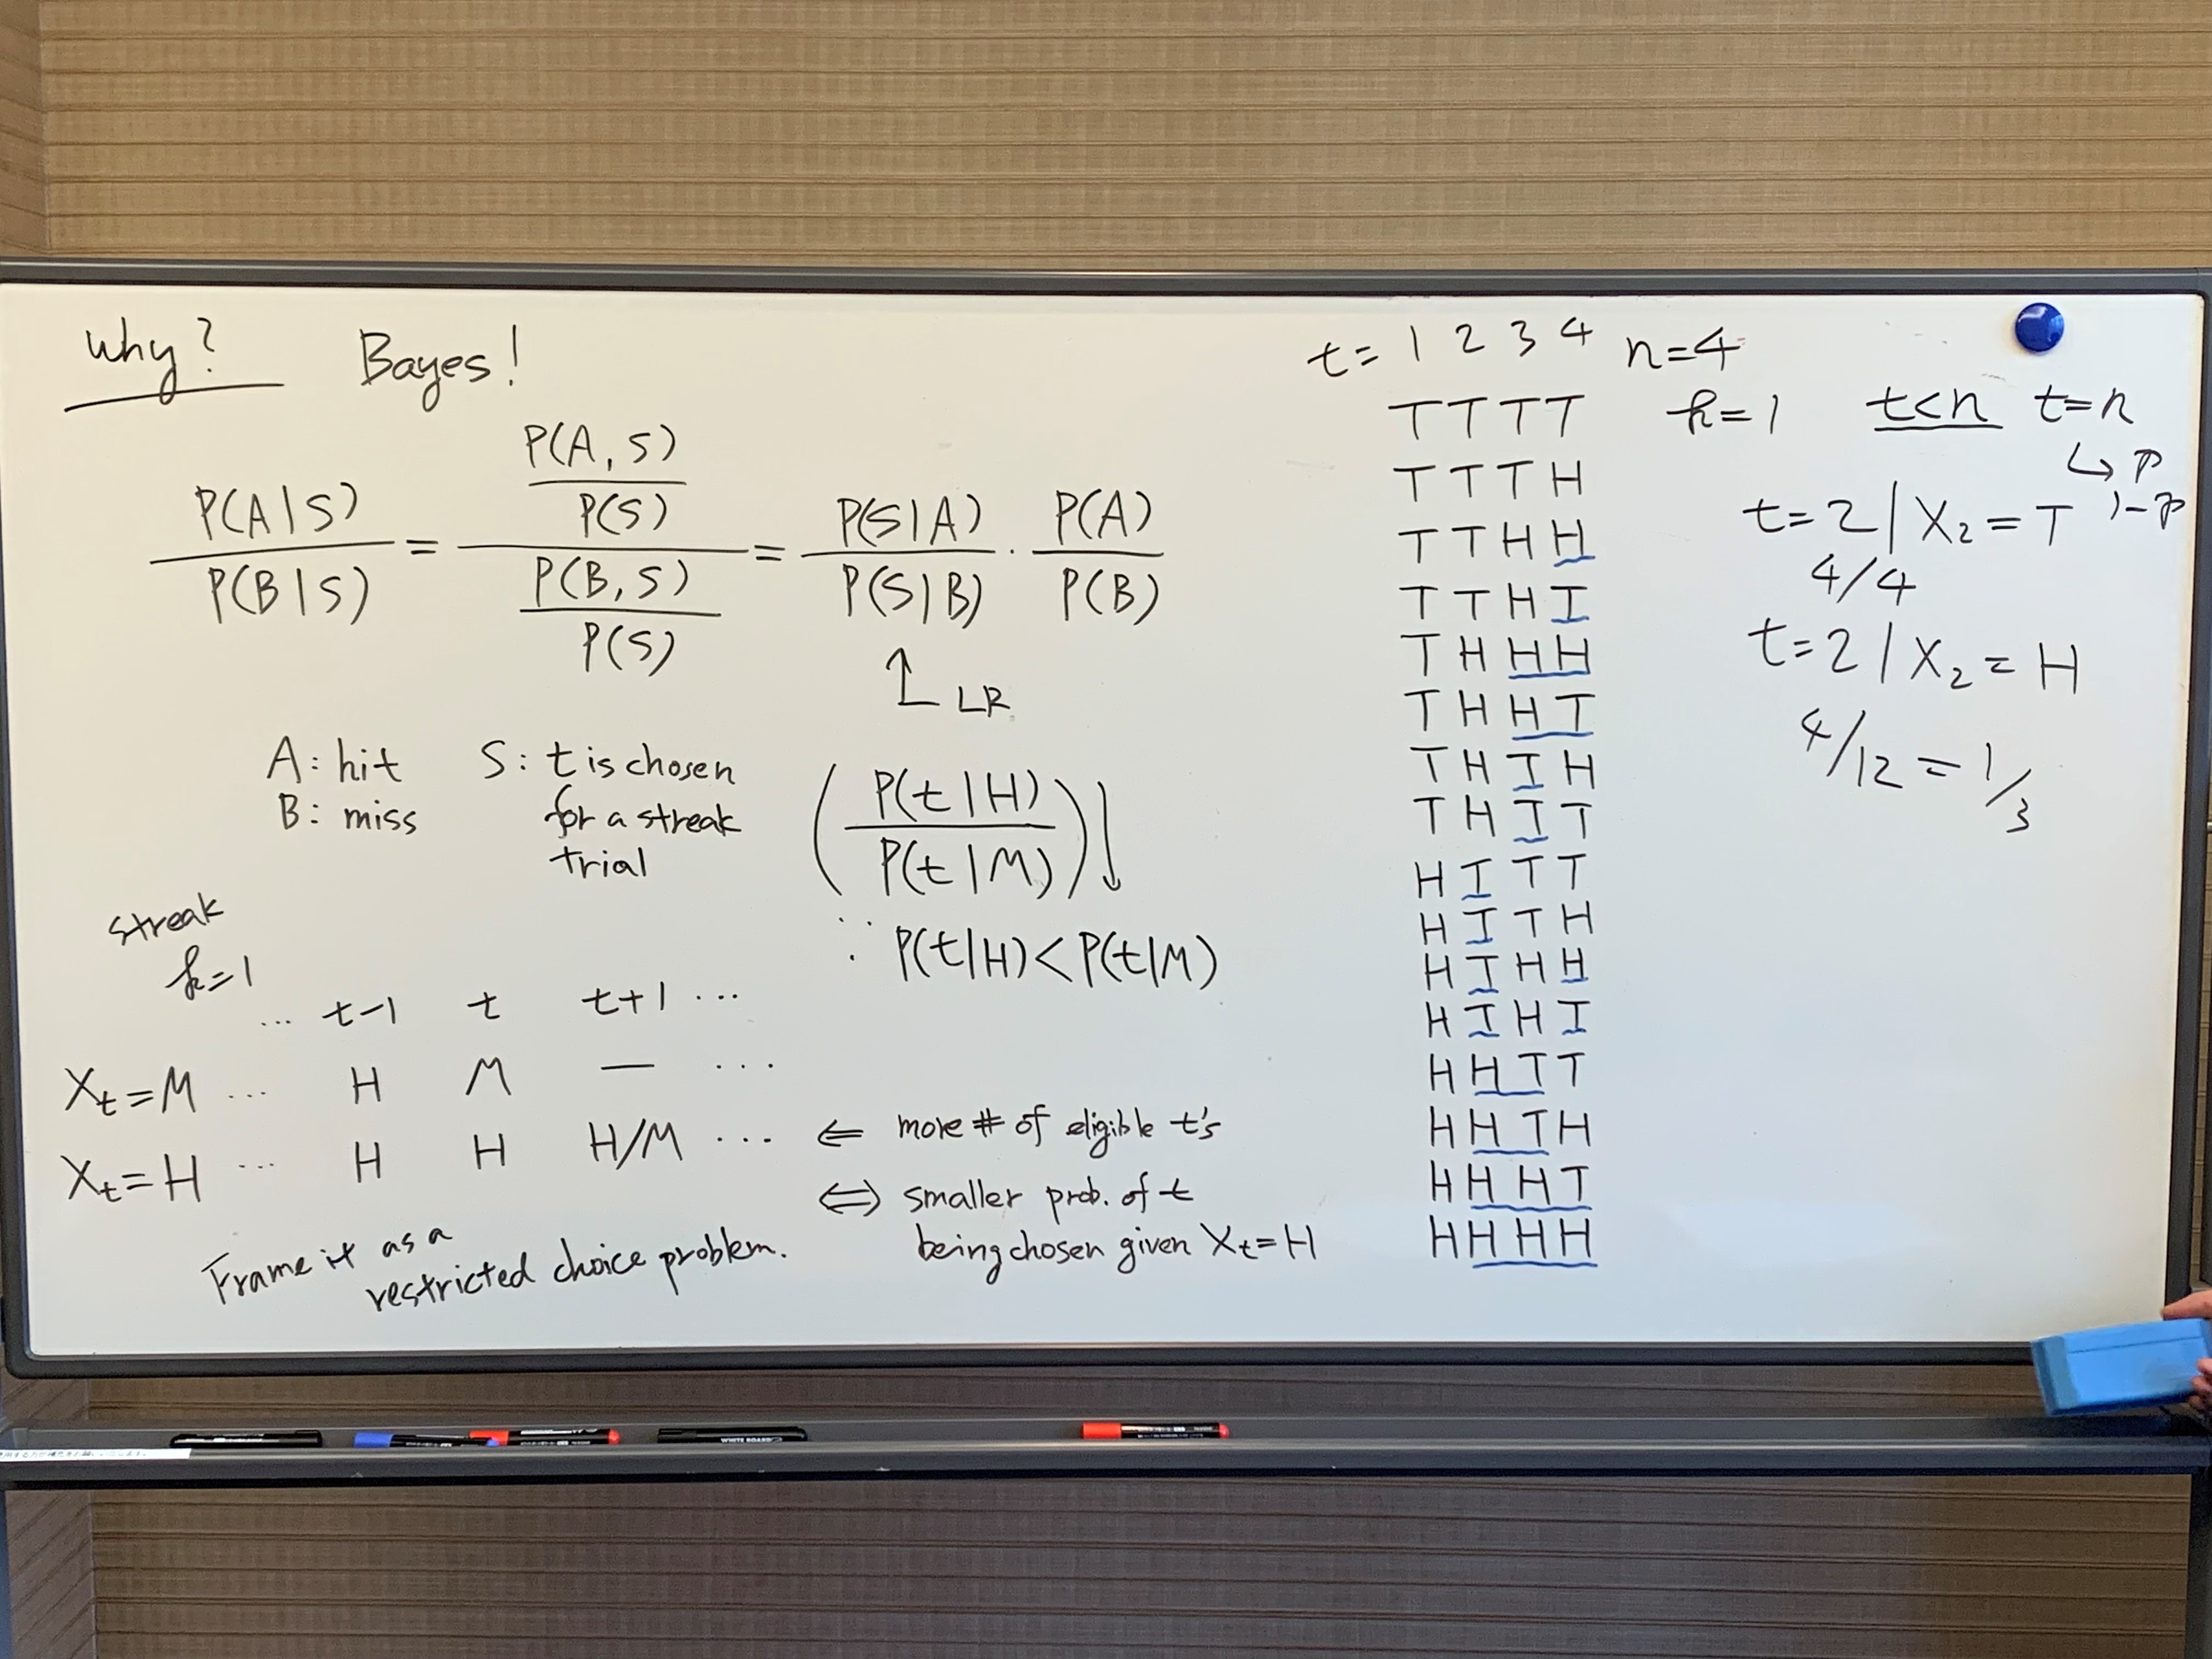 Why? Bayes!
P(A|S)/P(B|S) = (P(A,S)/P(S))/(P(B,S)/P(S)) = P(S|A)/P(S|B) · P(A)/P(B)
↑ LR
A: hit
B: miss
S: t is chosen
for a streak
trial
(P(t|H)/P(t|M))↓
∵ P(t|H)<P(t|M)
streak
k=1
... t-1 t t+1 ...
Xt=M ... H M — ...
Xt=H ... H H H/M ...
⇐ more # of eligible t's
⇔ smaller prob. of t
being chosen given Xt=H
Frame it as a
restricted choice problem.
t= 1 2 3 4 n=4
k=1
T T T T
T T T H
T T H H
T T H T
T H H H
T H H T
T H T H
T H T T
H T T T
H T T H
H T H H
H T H T
H H T T
H H T H
H H H T
H H H H
t<n t=n
↳ p
1-p
t=2|X2=T
4/4
t=2|X2=H
4/12=1/3
WHITE BOARD